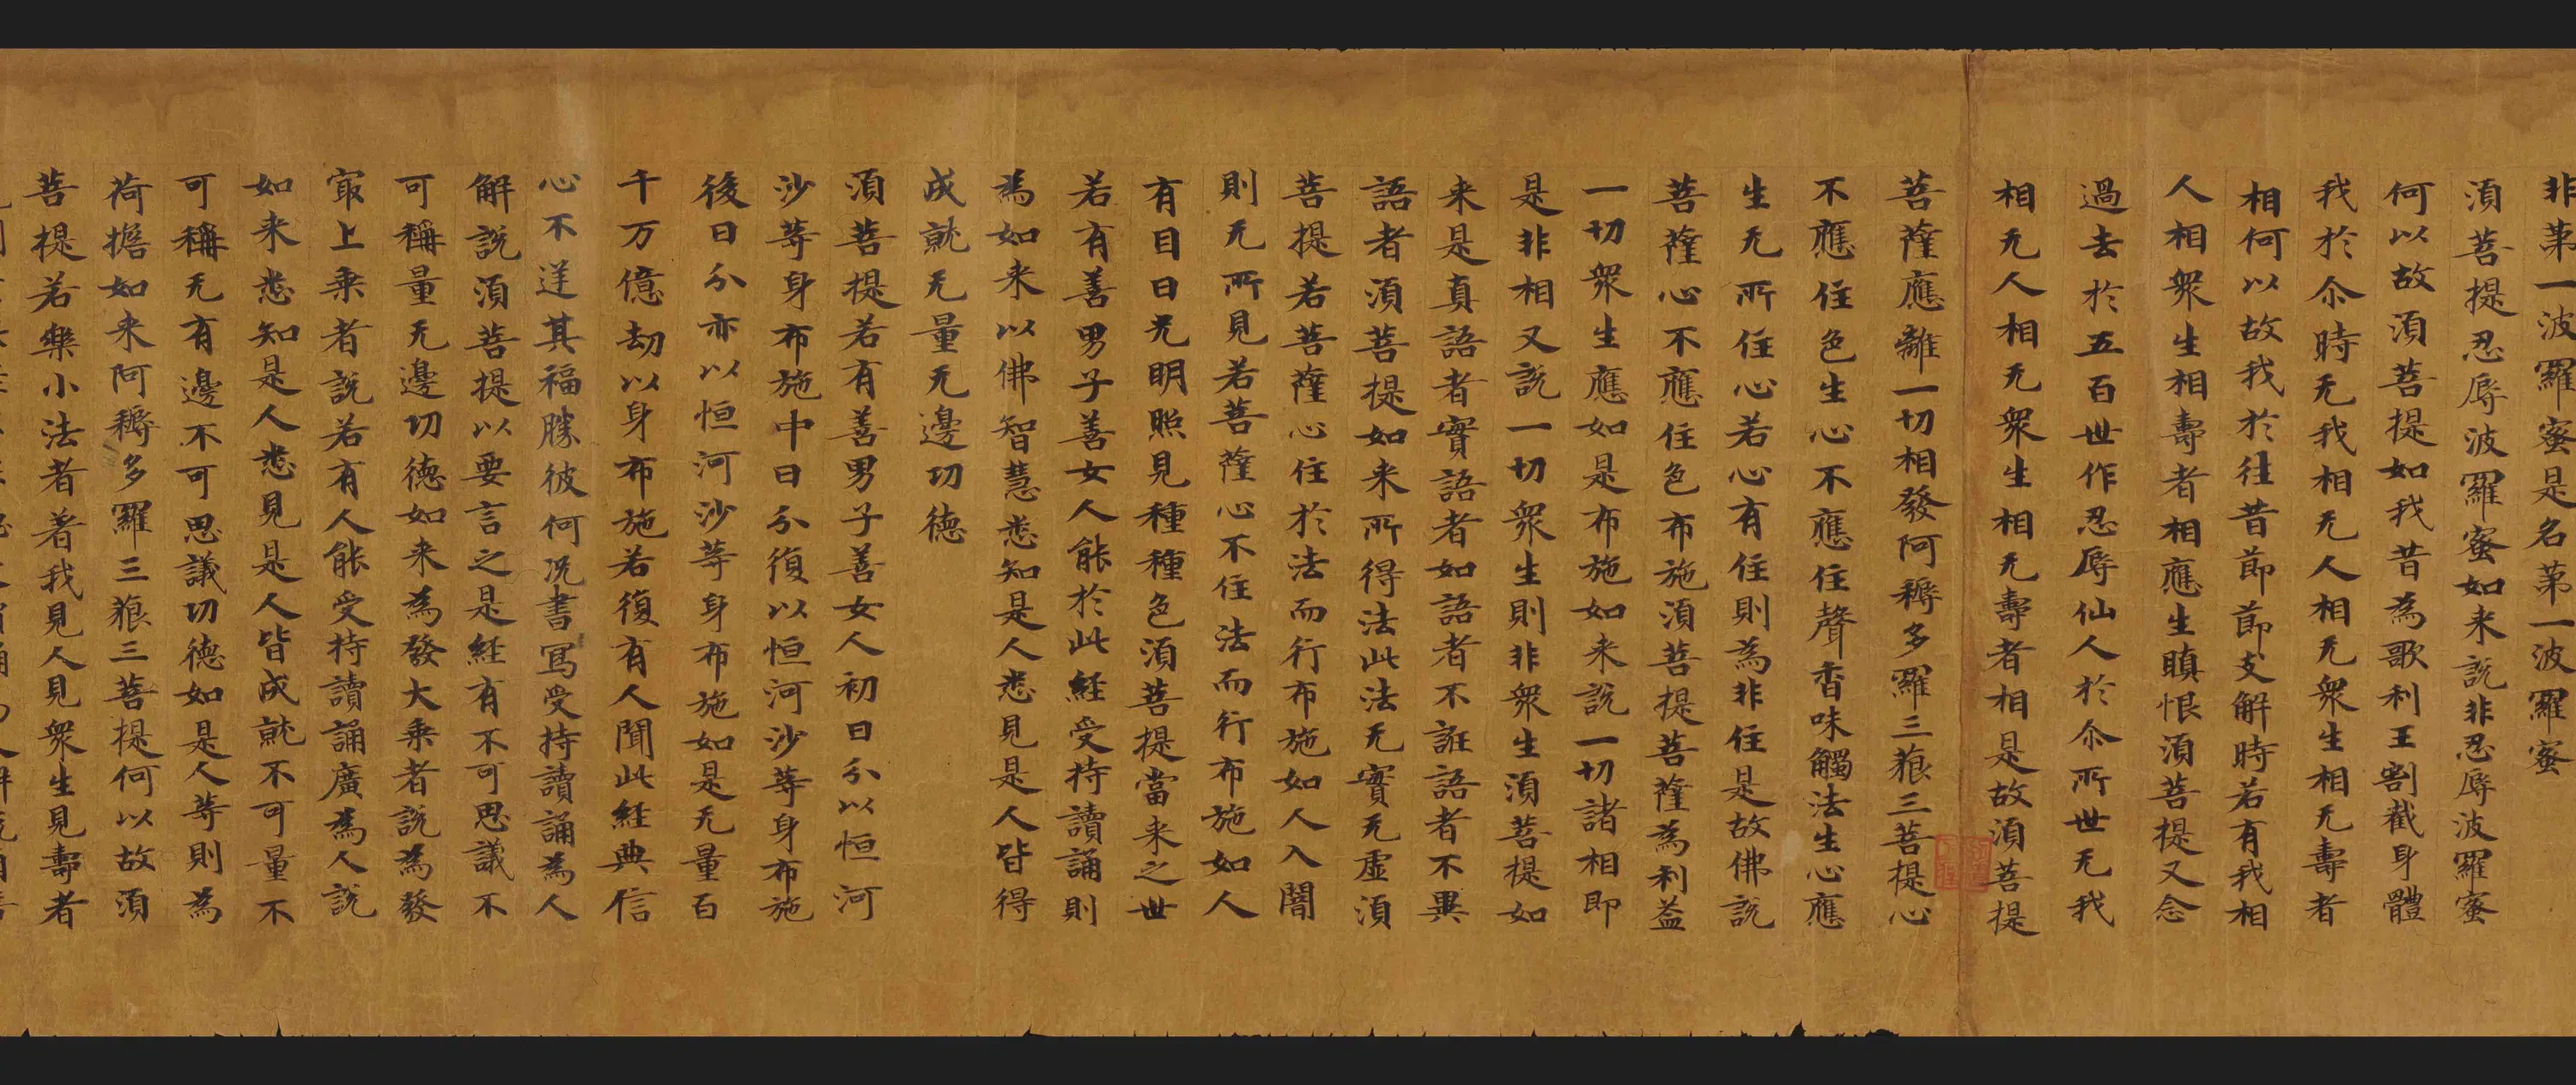 非苐一波羅蜜是名苐一波羅蜜
湏菩提忍辱波羅蜜如来説非忍辱波羅蜜
何以故湏菩提如我昔為歌利王割截身體
我於尒時无我相无人相无衆生相无壽者
相何以故我於往昔節節支解時若有我相
人相衆生相壽者相應生瞋恨湏菩提又念
過去於五百世作忍辱仙人於尒所世无我
相无人相无衆生相无壽者相是故湏菩提
菩薩應離一切相發阿耨多羅三藐三菩提心
不應住色生心不應住聲香味觸法生心應
生无所住心若心有住則為非住是故佛説
菩薩心不應住色布施湏菩提菩薩為利益
一切衆生應如是布施如来説一切諸相即
是非相又説一切衆生則非衆生湏菩提如
来是真語者實語者如語者不誑語者不異
語者湏菩提如来所得法此法无實无虛湏
菩提若菩薩心住於法而行布施如人入闇
則无所見若菩薩心不住法而行布施如人
有目日光明照見種種色湏菩提當来之世
若有善男子善女人能於此経受持讀誦則
為如来以佛智慧悉知是人悉見是人皆得
成就无量无邊功德
湏菩提若有善男子善女人初日分以恒河
沙等身布施中日分復以恒河沙等身布施
後日分亦以恒河沙等身布施如是无量百
千万億劫以身布施若復有人聞此経典信
心不逆其福勝彼何況書寫受持讀誦為人
解説湏菩提以要言之是経有不可思議不
可稱量无邊功德如来為發大乗者説為發
冣上乗者説若有人能受持讀誦廣為人説
如来悉知是人悉見是人皆成就不可量不
可稱无有邊不可思議功德如是人等則為
荷擔如来阿耨多羅三藐三菩提何以故湏
菩提若樂小法者著我見人見衆生見壽者